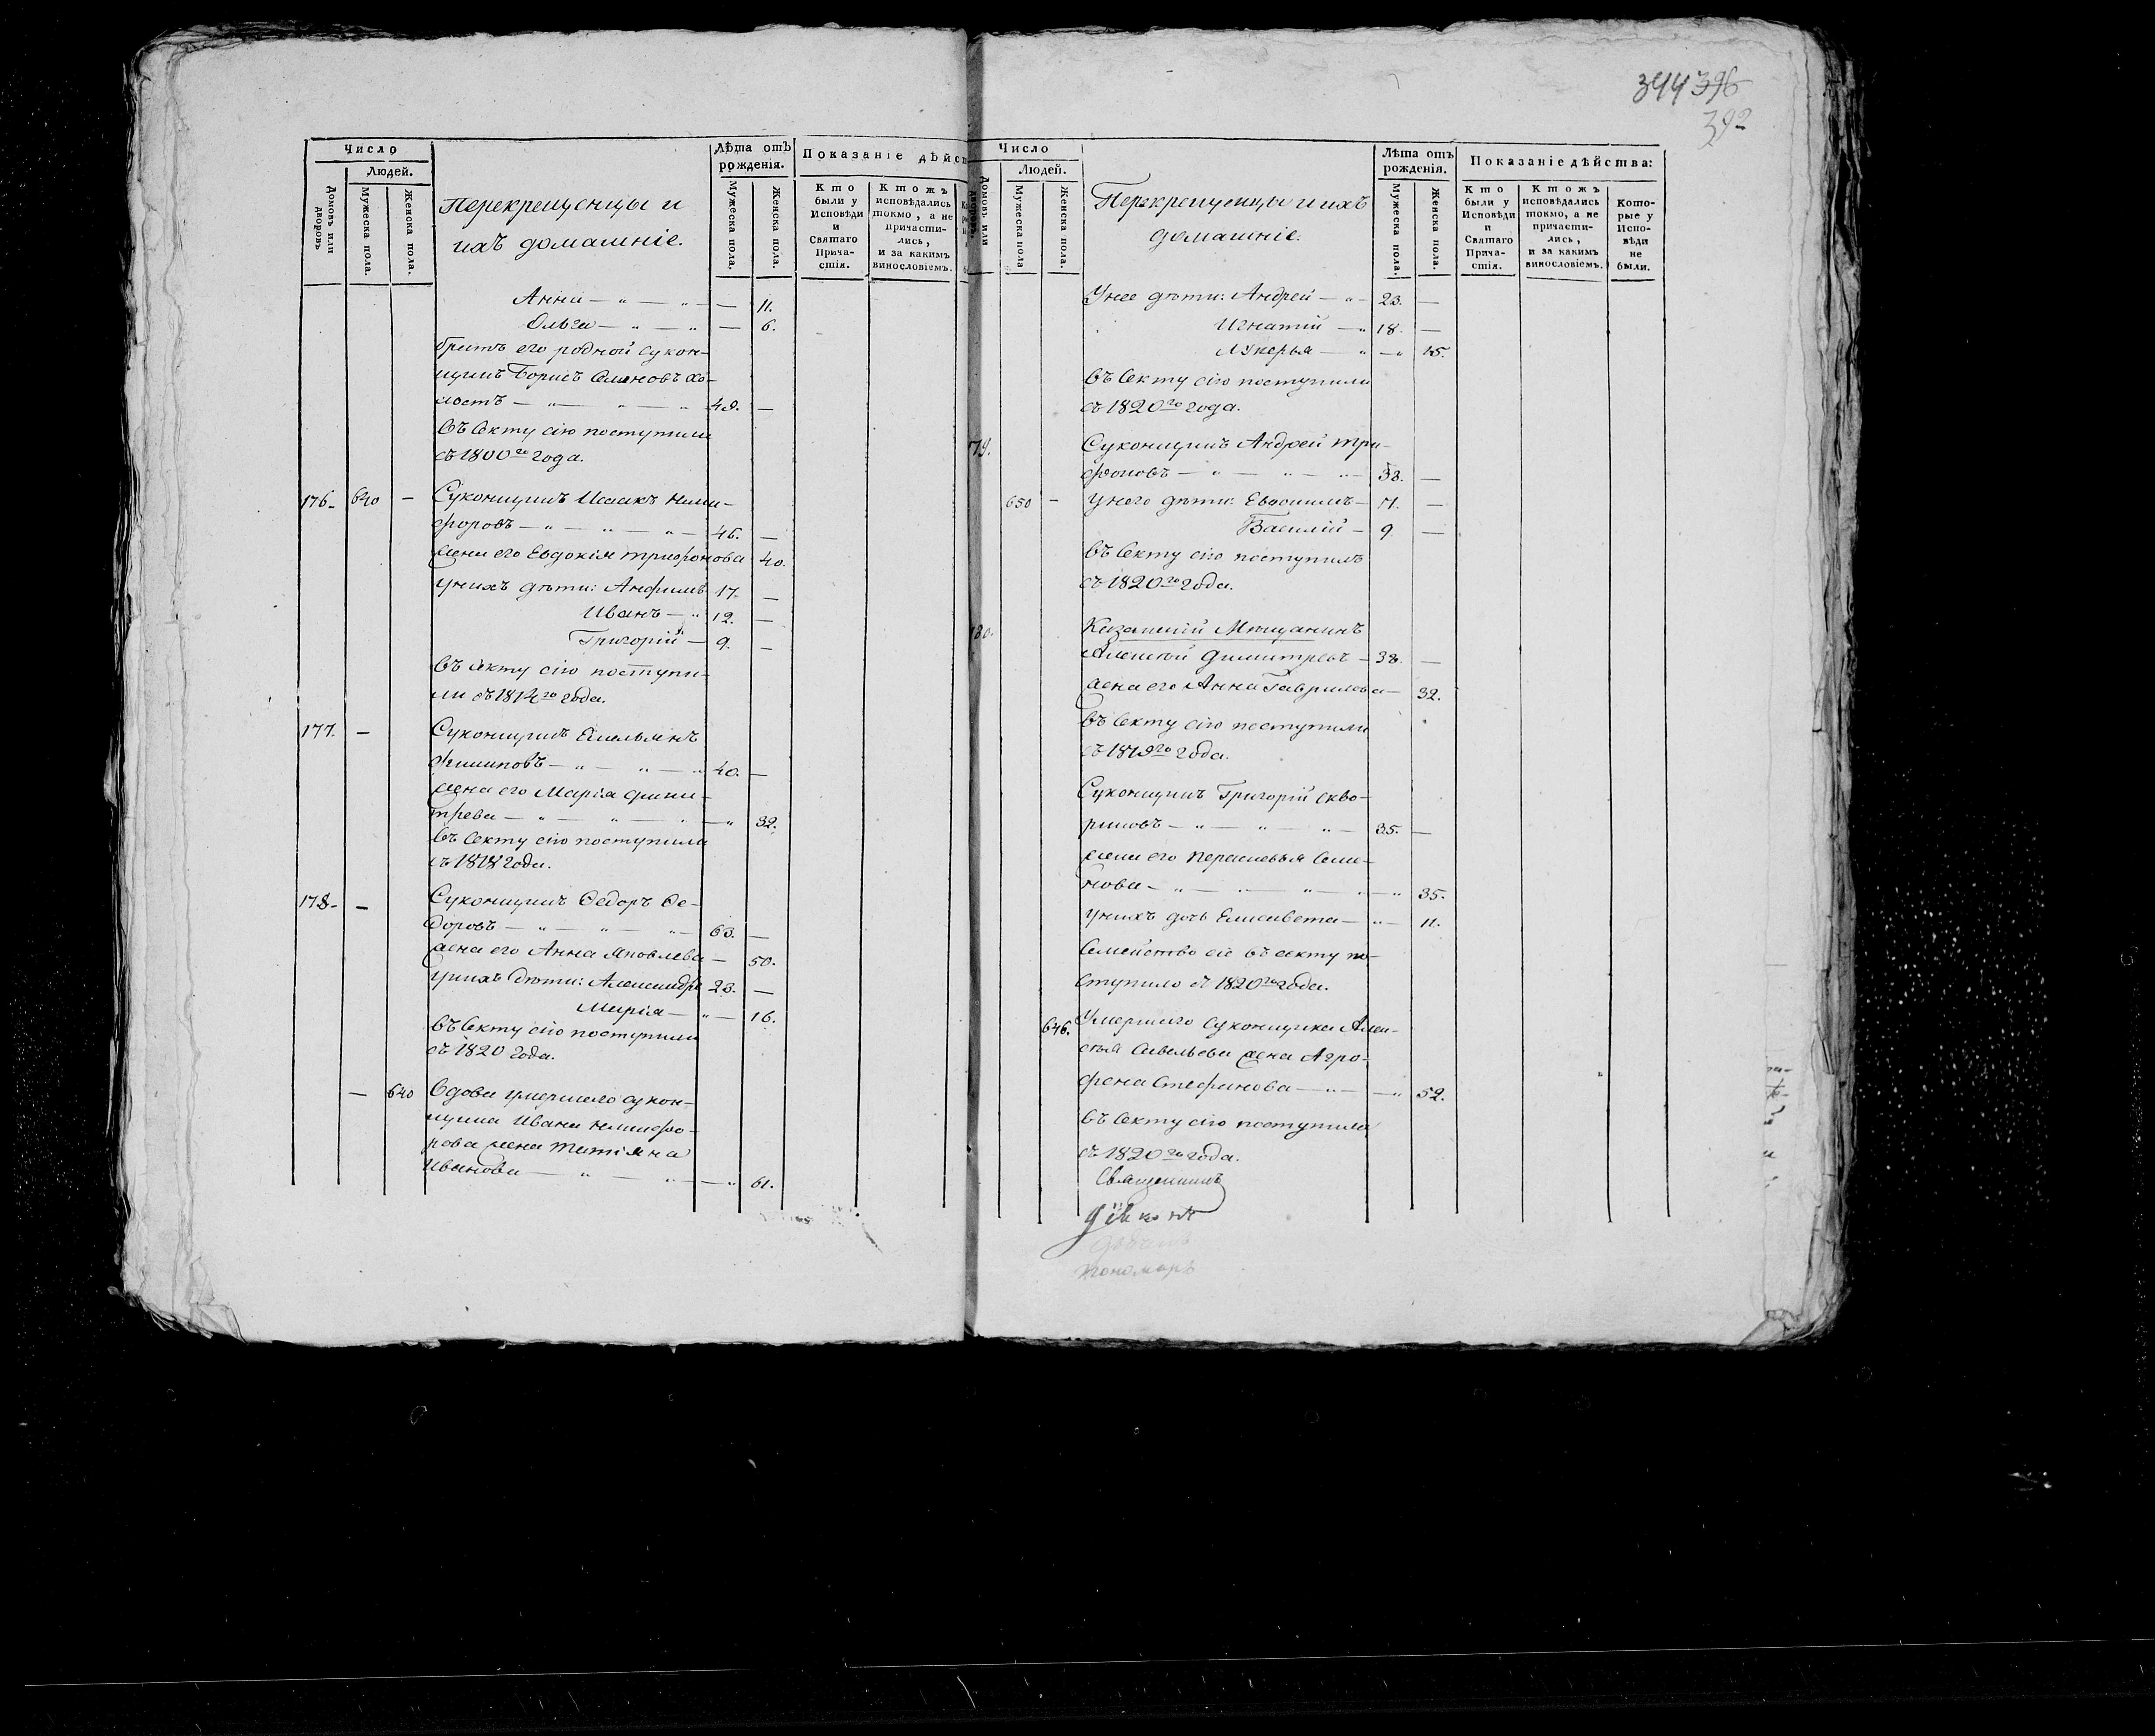 344 396
392
Число
Людей.
Домовъ или дворовъ
Мужеска пола.
Женска пола.
Перекрещенцы и
ихъ домашніе.
Лѣта отъ
рожденія.
Мужеска пола.
Женска пола.
Показаніе дѣйст
Кто
были у
Исповѣди
и
Святаго
Прича-
стія.
Ктожъ
исповѣдались
токмо, а не
причасти-
лись,
и за какимъ
винословіемъ.
Анна — " — " — — 11.
Ольга — " — " — 6.
братъ его родной сукон-
щикъ Борисъ Семеновъ хо-
лостъ — " — " — " 49. —
Въ Секту сію поступили
съ 1800го года.
176. 640 — Суконщикъ Исаакъ Ники-
форовъ — " — " — " — 46. —
жена его Евдокія Трифонова 40.
у нихъ дѣти: Анфимъ 17. —
Иванъ — " 12. —
Григорій — 9. —
въ секту сію поступи-
ли съ 1812го года.
177. — Суконщикъ Емельянъ
Филиповъ — " — " — " 40. —
жена его Марія Дими-
трева — " — " — " — " 32.
въ Секту сію поступили
съ 1818 года.
178. — Суконщикъ Ѳедоръ Ѳе-
доровъ — " — " — " — 63. —
жена его Анна Яковлева — 50.
у нихъ дѣти: Александръ 23. —
Марія — " — 16.
въ Секту сію поступили
съ 1820 года.
— 640 Вдова умершаго сукон-
щика Ивана Никифо-
рова жена Татіяна
Иванова — " — " — — " 61.
Число
Людей.
Домовъ или дворовъ.
Мужеска пола
Женска пола.
Перекрещенцы и ихъ
домашніе.
Лѣта отъ
рожденія.
Мужеска пола.
Женска пола.
Показаніе дѣйства:
Кто
были у
Исповѣди
и
Святаго
Прича-
стія.
Ктожъ
исповѣдались
токмо, а не
причасти-
лись,
и за какимъ
винословіемъ.
Кото-
рые у
Испо-
вѣди
не
были.
У нее дѣти: Андрей — " — 23. —
Игнатій — " 18. —
Лукерья — " — " 15.
въ Секту сію поступили
съ 1820го года.
79. Суконщикъ Андрей Три-
фоновъ — " — " — " — 38. —
650 — у него дѣти: Евдокимъ — 11. —
Василій — 9 —
въ Секту сію поступилъ
съ 1820го года.
180. Казанскій Мѣщанинъ
Алексѣй Димитревъ — 38. —
жена его Анна Гаврилова — 32.
въ Секту сію поступили
съ 1819го года.
Суконщикъ Григорій Скво-
рцовъ — " — " — " — 35. —
жена его Парасковья Семе-
нова — " — " — " — " — " 35.
у нихъ дочь Елисавета — " — 11.
Семейство сіе въ секту по-
ступило съ 1820го года.
646. Умершаго суконщика Алек-
сѣя Савельева жена Агро-
фена Стефанова — " — — " 52.
въ Секту сію поступила
съ 1820го года.
Священникъ
Діаконъ
Дьячекъ
Пономарь